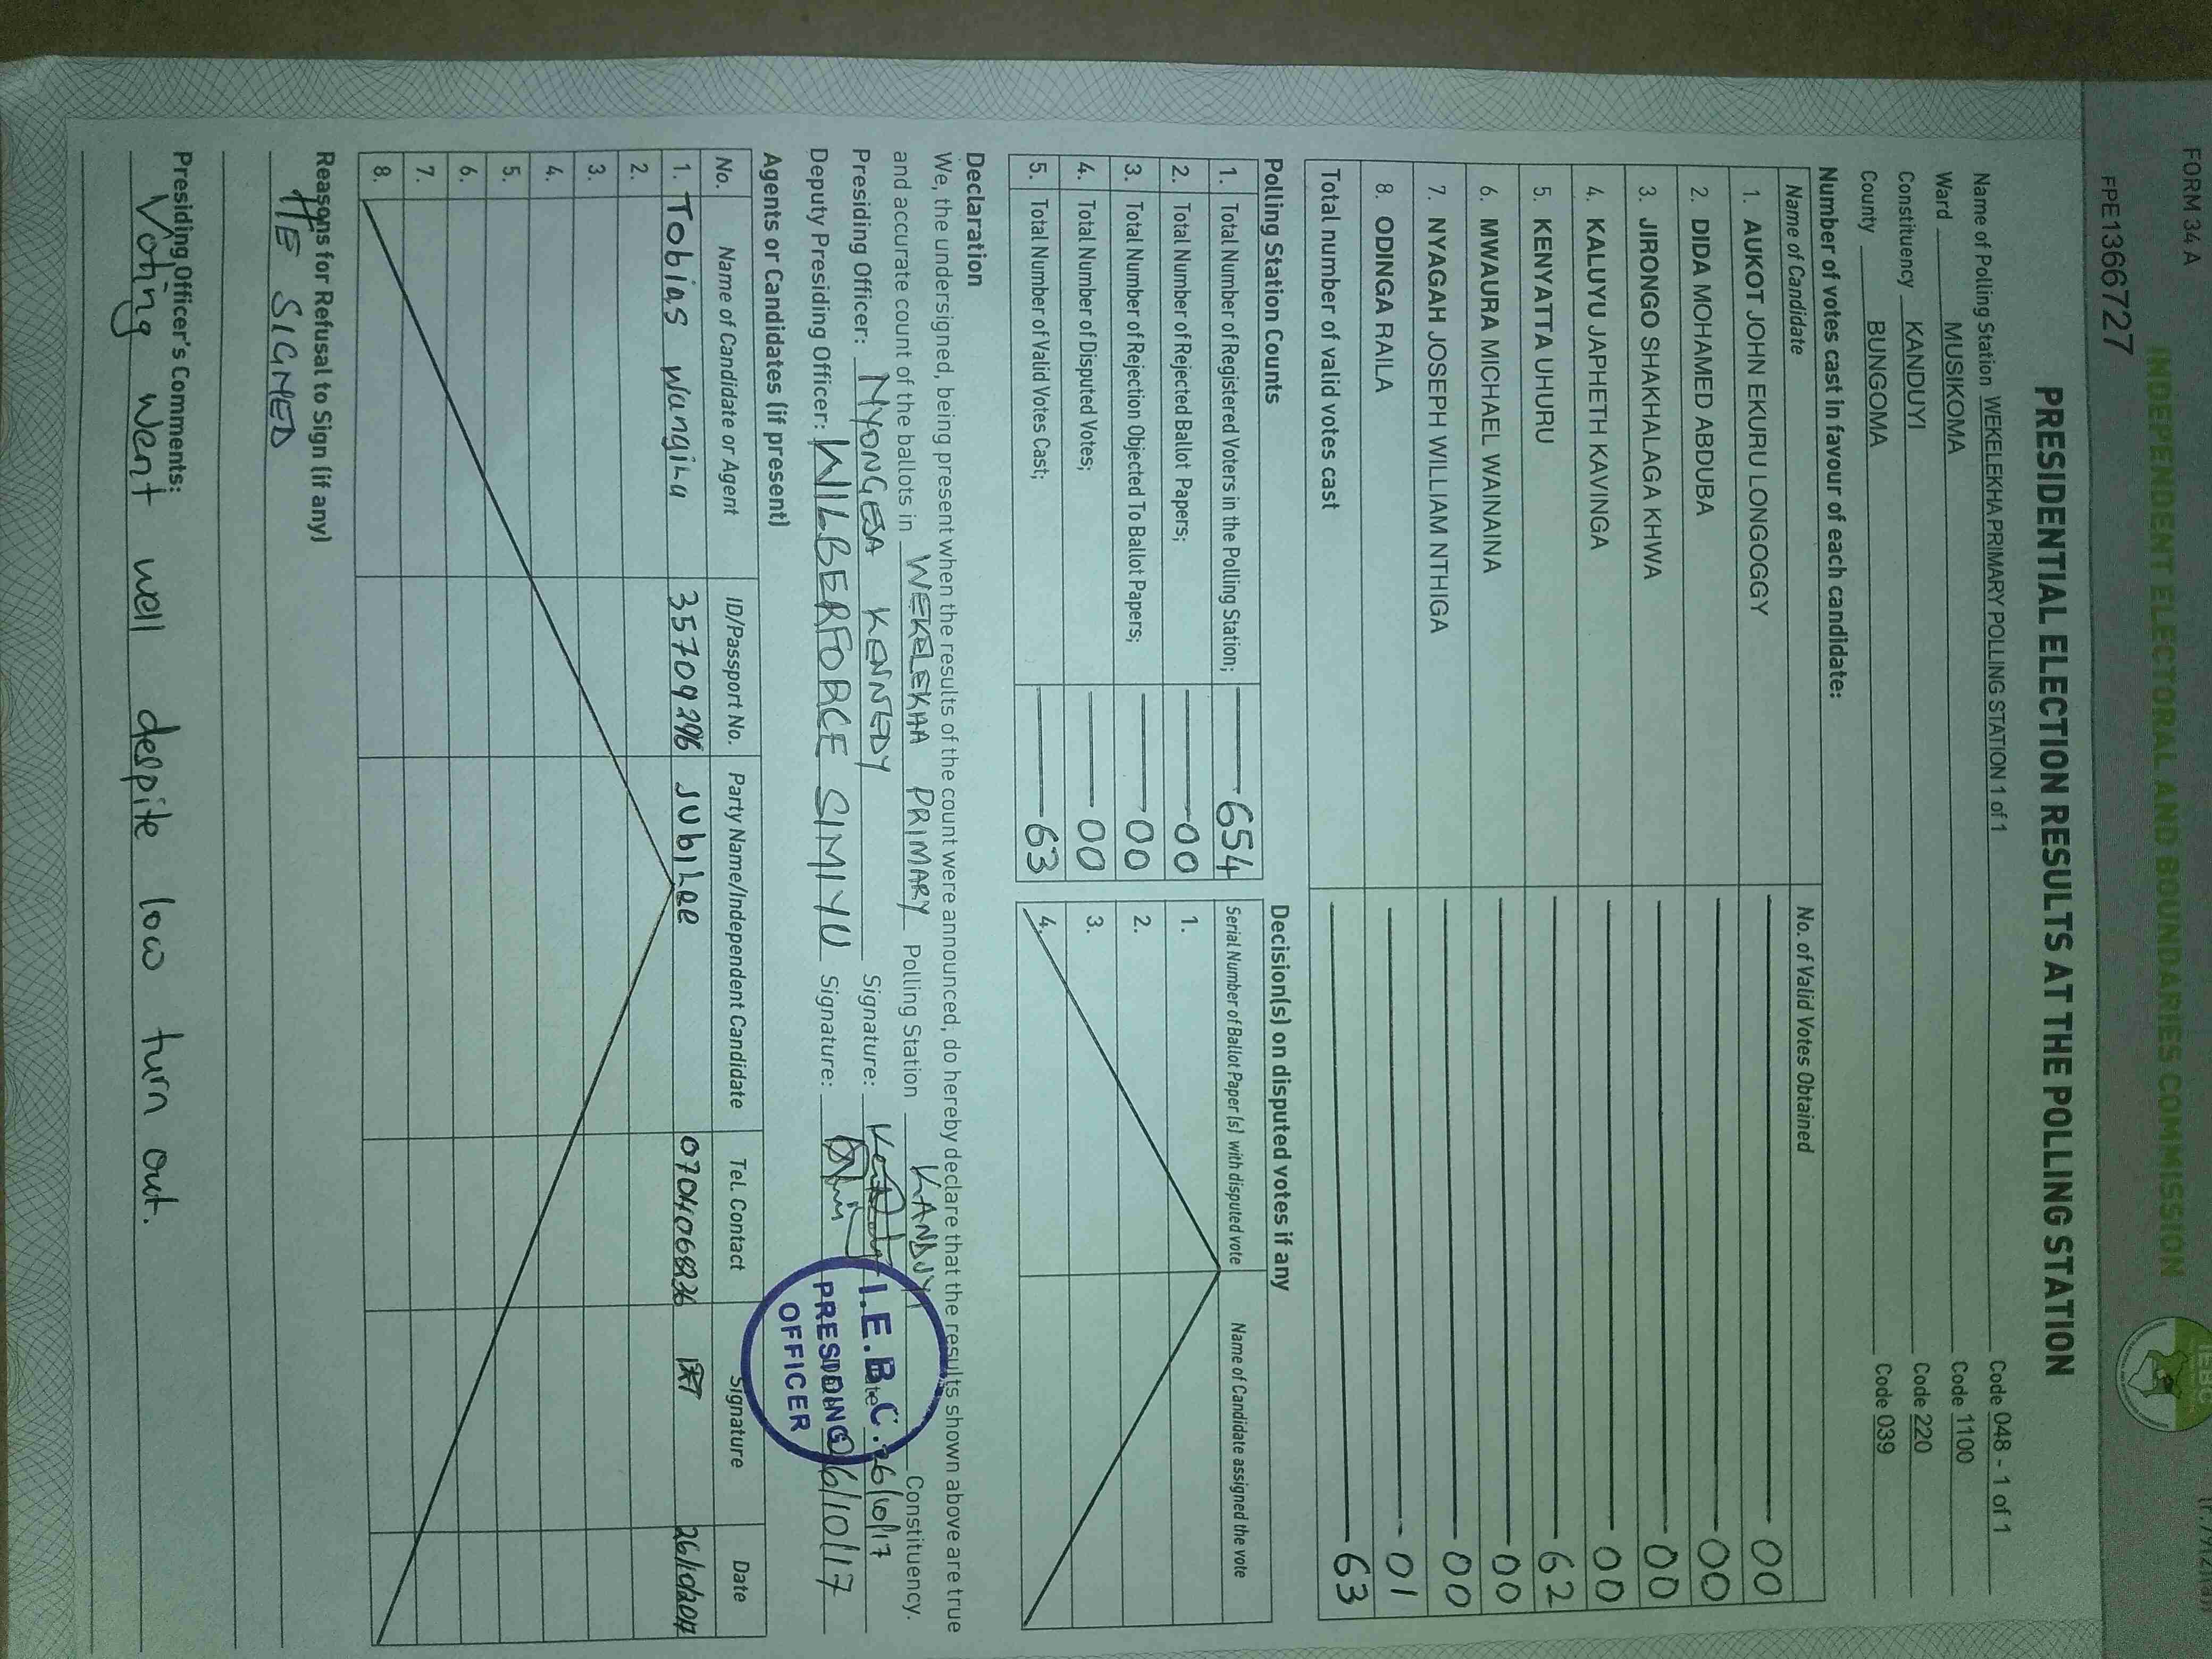 FORM 34 A
INDEPENDENT ELECTORAL AND BOUNDARIES COMMISSION
FPE1366727
PRESIDENTIAL ELECTION RESULTS AT THE POLLING STATION
Name of Polling Station WEKELEKHA PRIMARY POLLING STATION 1 of 1 Code 048 - 1 of 1
Ward MUSIKOMA Code 1100
Constituency KANDUYI Code 220
County BUNGOMA Code 039
Number of votes cast in favour of each candidate:
Name of Candidate No. of Valid Votes Obtained
1. AUKOT JOHN EKURU LONGOGGY 00
2. DIDA MOHAMED ABDUBA 00
3. JIRONGO SHAKHALAGA KHWA 00
4. KALUYU JAPHETH KAVINGA 00
5. KENYATTA UHURU 62
6. MWAURA MICHAEL WAINAINA 00
7. NYAGAH JOSEPH WILLIAM NTHIGA 00
8. ODINGA RAILA 01
Total number of valid votes cast 63
Polling Station Counts
1. Total Number of Registered Voters in the Polling Station; 654
2. Total Number of Rejected Ballot Papers; 00
3. Total Number of Rejection Objected To Ballot Papers; 00
4. Total Number of Disputed Votes; 00
5. Total Number of Valid Votes Cast; 63
Decision(s) on disputed votes if any
Serial Number of Ballot Paper (s) with disputed vote Name of Candidate assigned the vote
1.
2.
3.
4.
Declaration
We, the undersigned, being present when the results of the count were announced, do hereby declare that the results shown above are true
and accurate count of the ballots in WEKELEKHA PRIMARY Polling Station KANDUYI Constituency.
Presiding Officer: NYONGESA KENNEDY Signature: Date 26/10/17
Deputy Presiding Officer: WILBERFORCE SIMIYU Signature: 26/10/17
I.E.B.C.
PRESIDING
OFFICER
Agents or Candidates (if present)
No. Name of Candidate or Agent ID/Passport No. Party Name/Independent Candidate Tel. Contact Signature Date
1. Tobias Wangila 35709296 JUbiLee 0704068236
2.
3.
4.
5.
6.
7.
8.
Reasons for Refusal to Sign (if any)
HE SIGNED
Presiding Officer's Comments:
Voting went well despite low turn out.